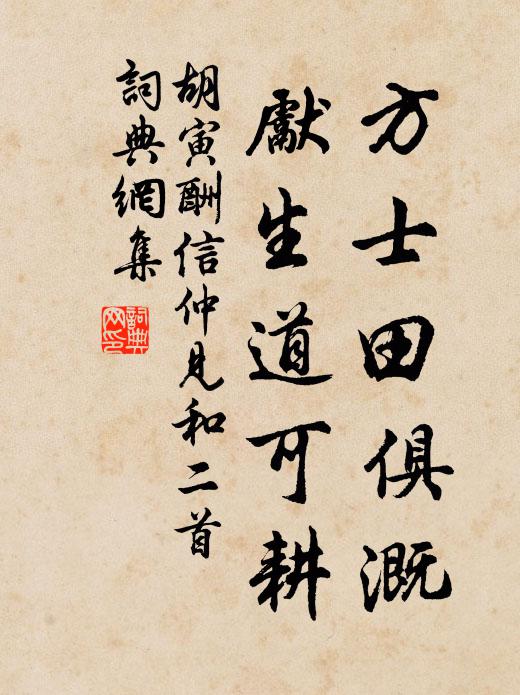 方士田俱溉
獻生道可耕
胡寅酬信仲見和二首
詞典網集
詞典
网印